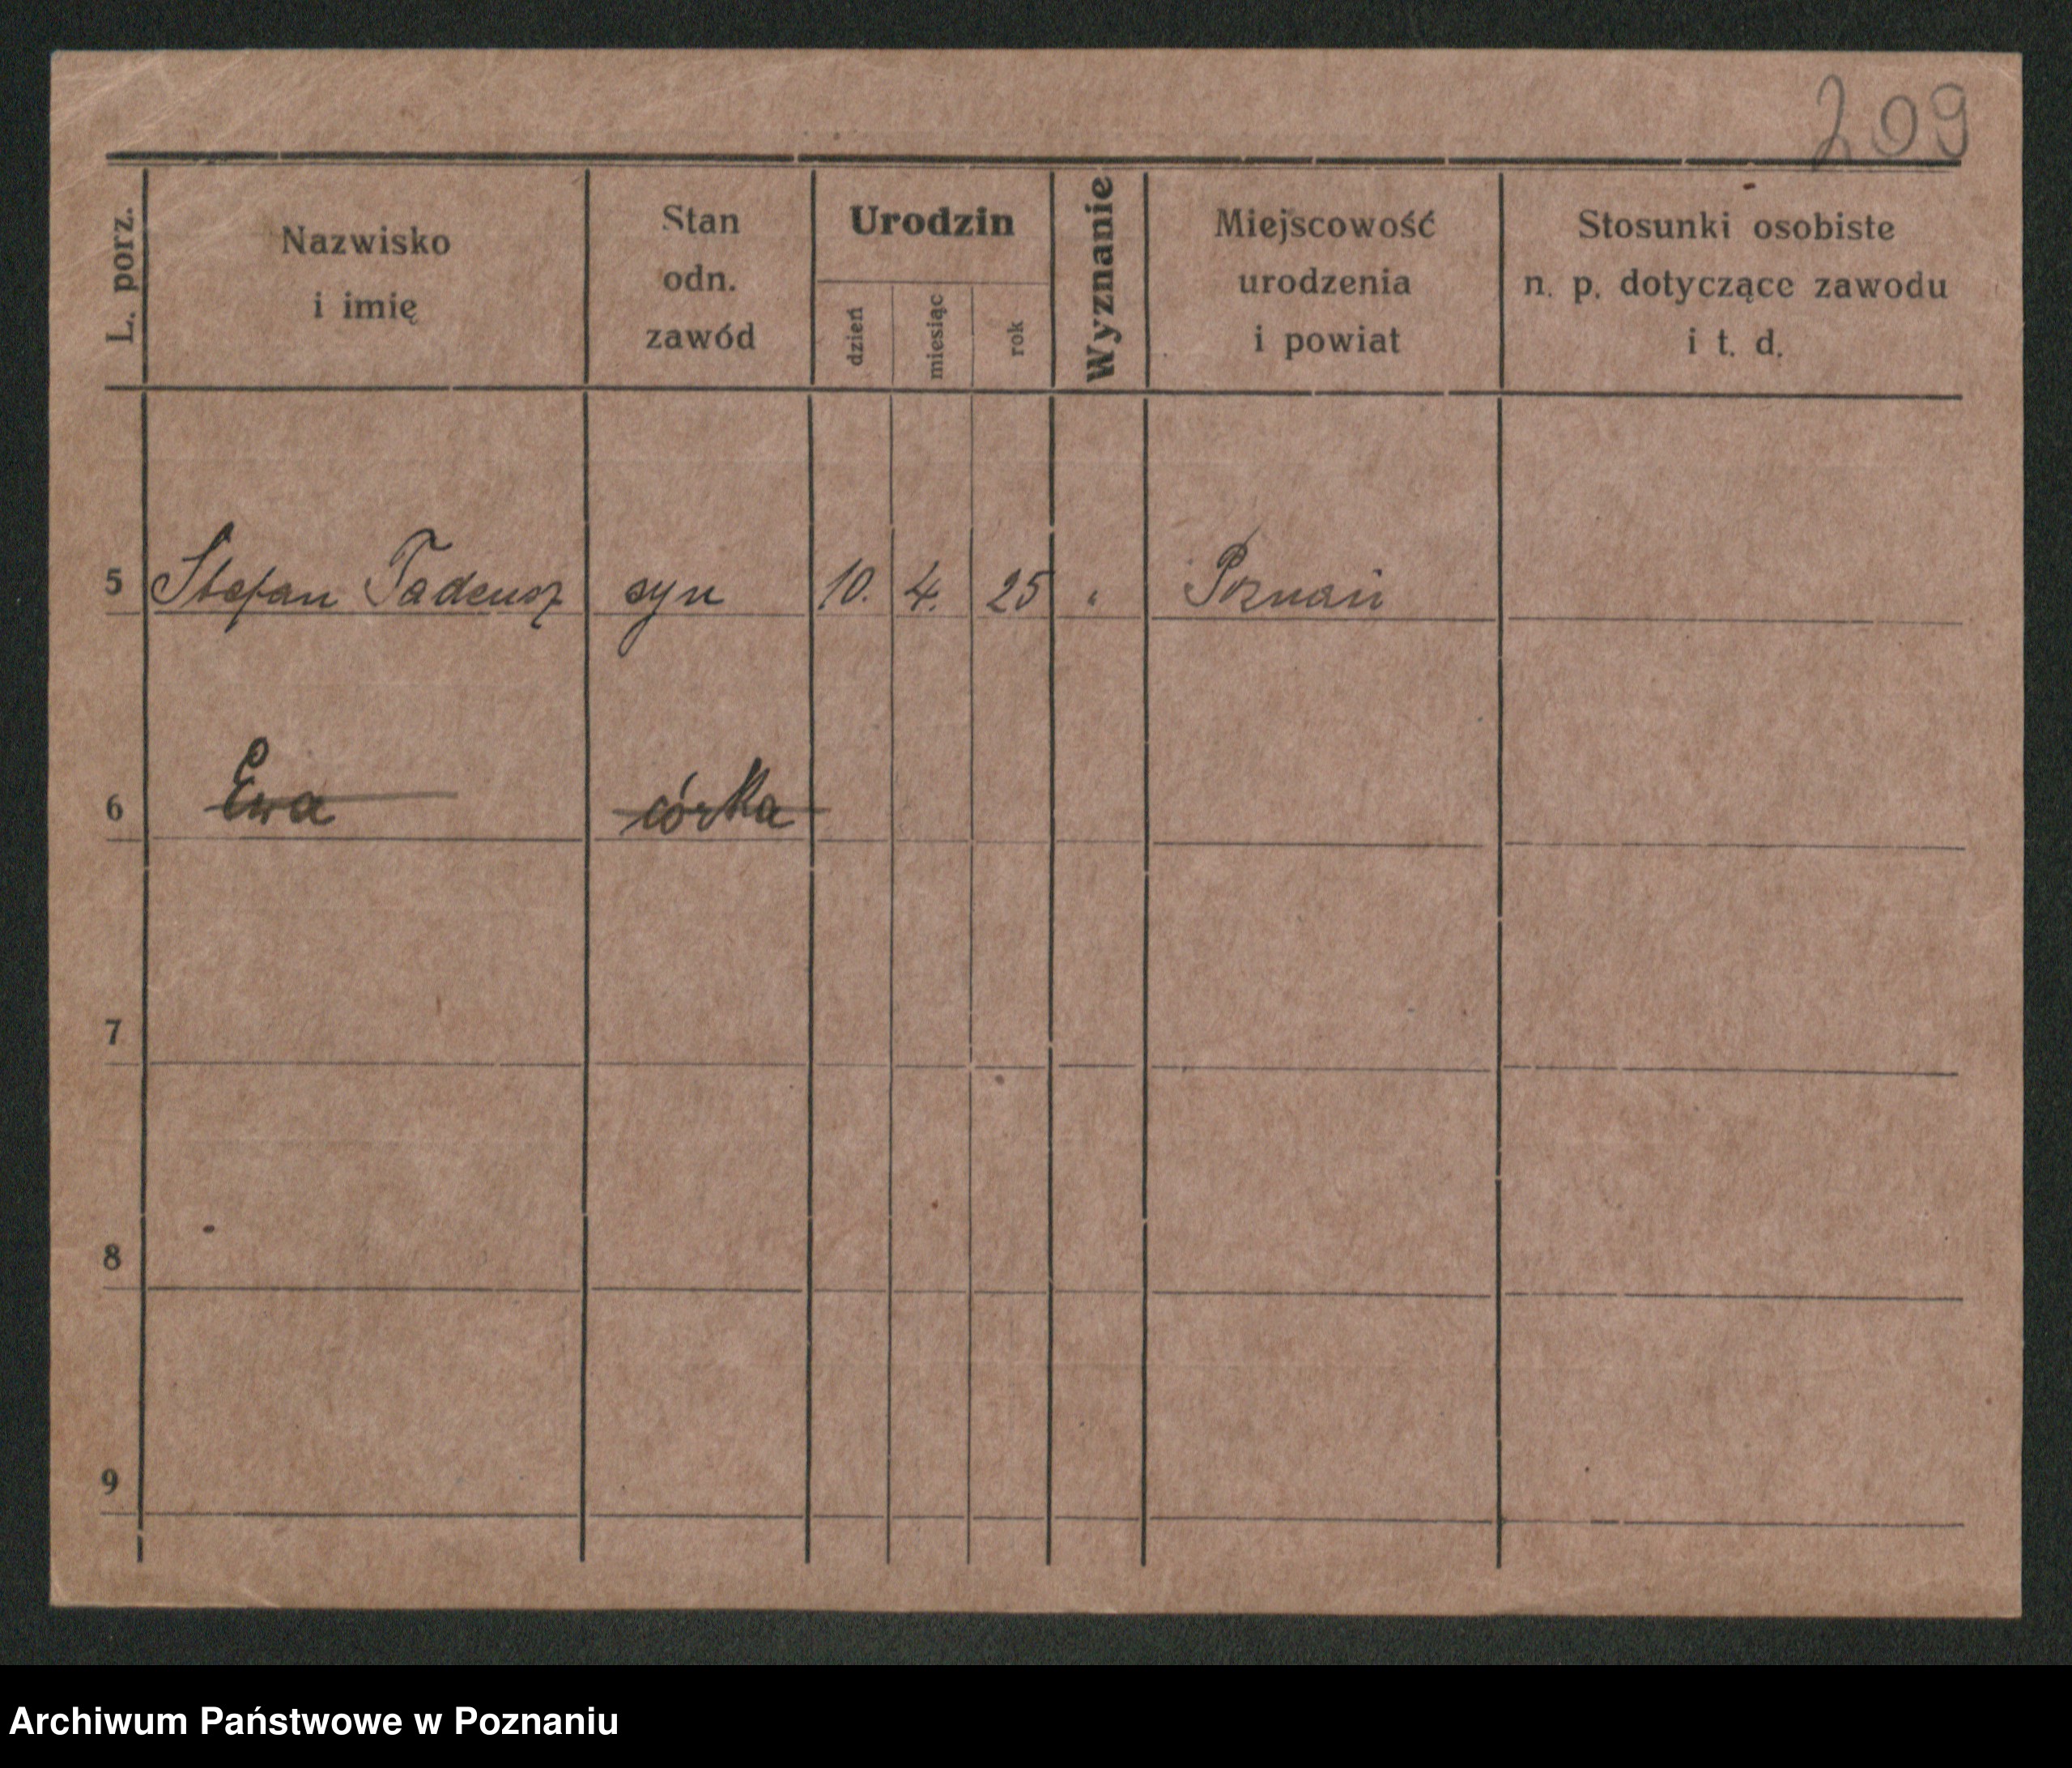 209
L. porz.
Nazwisko
i imię
Stan
odn.
zawód
Urodzin
dzień
miesiąc
rok
Wyznanie
Miejscowość
urodzenia
i powiat
Stosunki osobiste
n. p. dotyczące zawodu
i t. d.
5 Stefan Tadeusz syn 10. 4. 25 " Poznań
6 Ewa córka
7
8
9
Archiwum Państwowe w Poznaniu